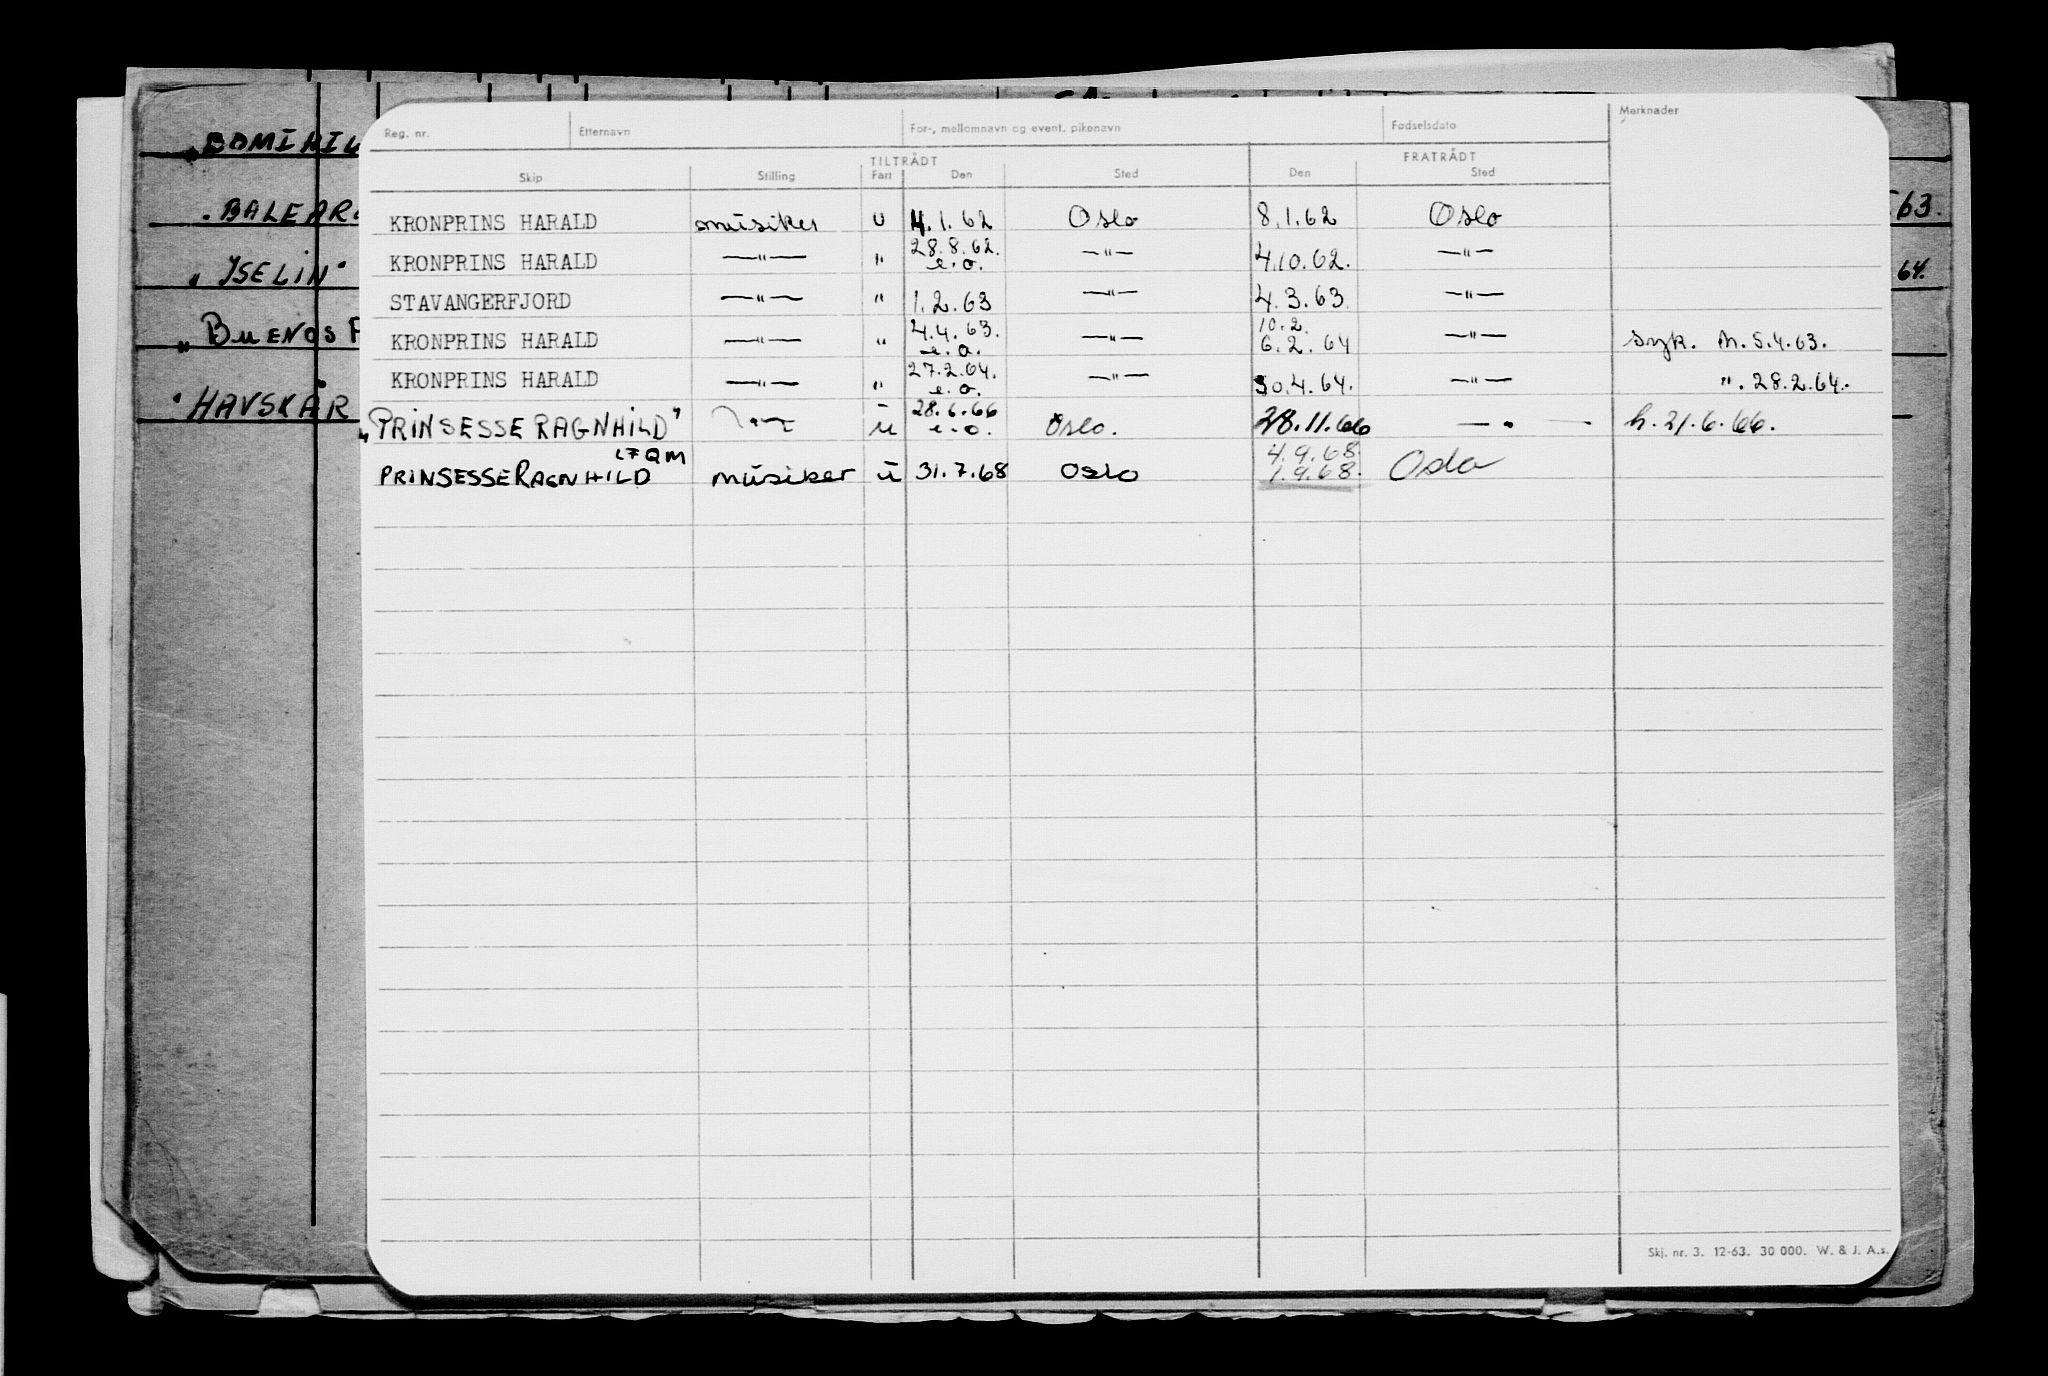 Reg. nr. Etternavn For-, mellomnavn og event. pikenavn Fødselsdato Merknader
TILTRÅDT FRATRÅDT
Skip Stilling Fart Den Sted Den Sted
KRONPRINS HARALD musiker u 4.1.62 Oslo 8.1.62 Oslo
KRONPRINS HARALD —"— " 28.8.62. e.o. —"— 4.10.62. —"—
STAVANGERFJORD —"— " 1.2.63 —"— 4.3.63. —"—
10.2.
KRONPRINS HARALD —"— " 4.4.63. e.o. —"— 6.2.64 —"— syk. h. 5.4.63.
KRONPRINS HARALD —"— " 27.2.64. e.o. —"— 30.4.64. —"— ". 28.2.64.
"PRINSESSE RAGNHILD" —"— u 28.6.66 e.o. Oslo. 28.11.66 —"— h. 21.6.66.
LFQM 4.9.68
PRINSESSE RAGNHILD musiker u 31.7.68 Oslo 1.9.68. Oslo
BALEAR
63.
"ISELIN"
64.
"BUENOS
"HAVSKÅR
Skj. nr. 3. 12-63. 30 000. W. & J. A.s.